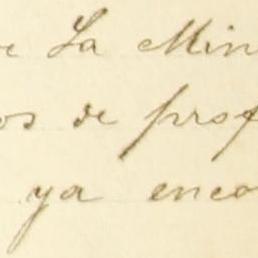 e La Min
os de prof
ya enco